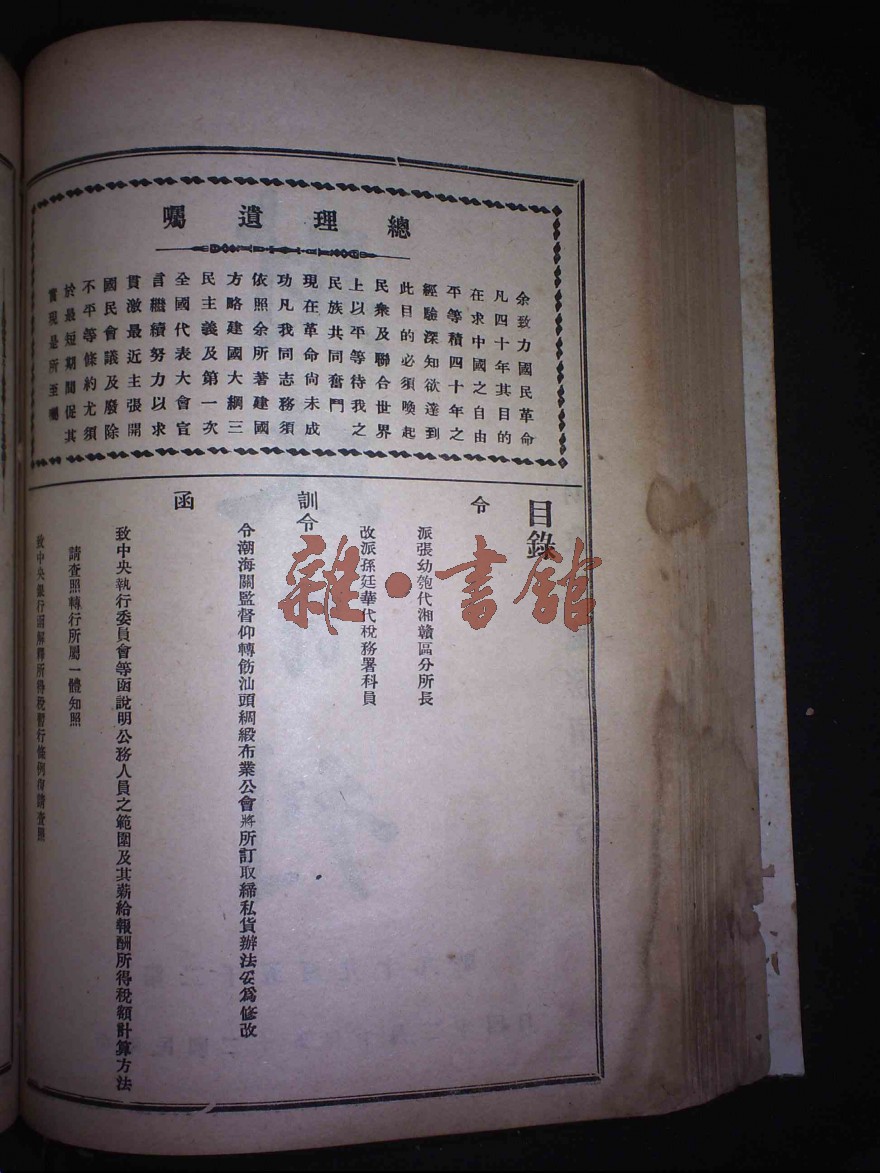 總理遺囑
余致力國民革命
凡四十年其目的
在求中國之自由
平等積四十年之
經驗深知欲達到
此目的必須喚起
民衆及聯合世界
上以平等待我之
民族共同奮鬥
現在革命尚未成
功凡我同志務須
依照余所著建國
方略建國大綱三
民主義及第一次
全國代表大會宣
言繼續努力以求
貫澈最近主張開
國民會議及廢除
不平等條約尤須
於最短期間促其
實現是所至囑
目錄
令
派張幼匏代湘贛區分所長
改派孫廷華代稅務署科員
訓令
令潮海關監督仰轉飭汕頭綢緞布業公會將所訂取締私貨辦法妥爲修改
函
致中央執行委員會等函說明公務人員之範圍及其薪給報酬所得稅額計算方法
請查照轉行所屬一體知照
致中央銀行函解釋所得稅暫行條例復請查照
雜·書館